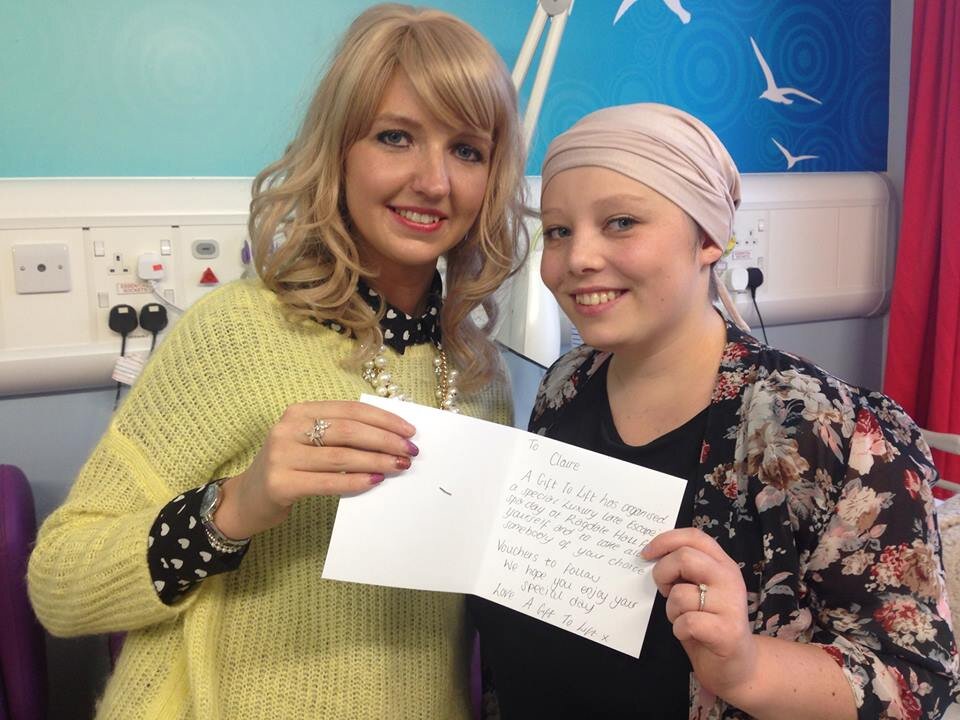 To
Claire
A Gift To Lift has organised
a special Luxury Late Escape
spa day at Ragdale Hall f
yourself and to take alo
somebody of your choice
Vouchers to follow
We hope you enjoy your
special day
Love A Gift To Lift x
ESSENTIAL
SOCKETS